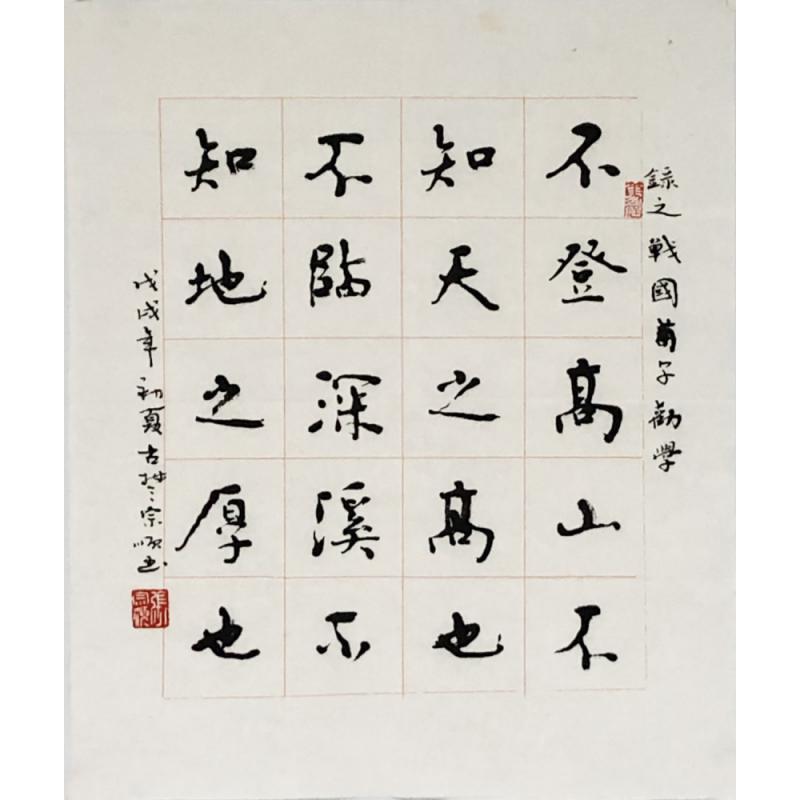 錄之戰國荀子勸學
不登高山不
知天之高也
不臨深溪不
知地之厚也
戊戌年初夏古楚宗順書